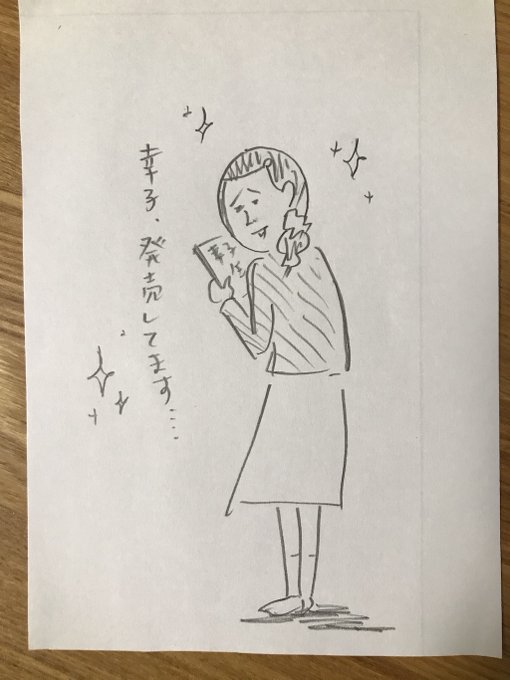 幸子、発売してます…
幸子